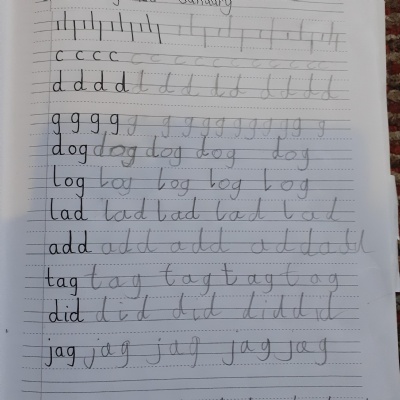 January
c c c c c c c c c c c
d d d d d d d d d d d d d
g g g g g g g g g g g g g g g
dog dog dog dog dog
log log log log log
lad lad lad lad lad
add add add add add
tag tag tag tag tag
did did did did did
jag jag jag jag jag